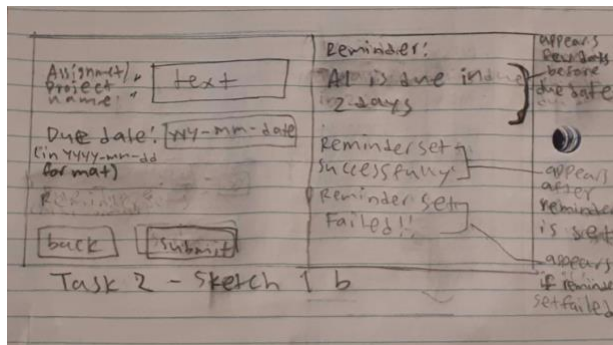 Assignmet/
Project
name:
text
Due date:
(in yyyy-mm-dd
format)
yyy-mm-date
back
submit
Reminder:
A1 is due in due
2 days
Reminder set
successfully
Reminder set
Failed!!
appears
few days
before
due date
appears
after
reminder
is sent
appears
if reminder
set failed
Task 2 - Sketch 1 b